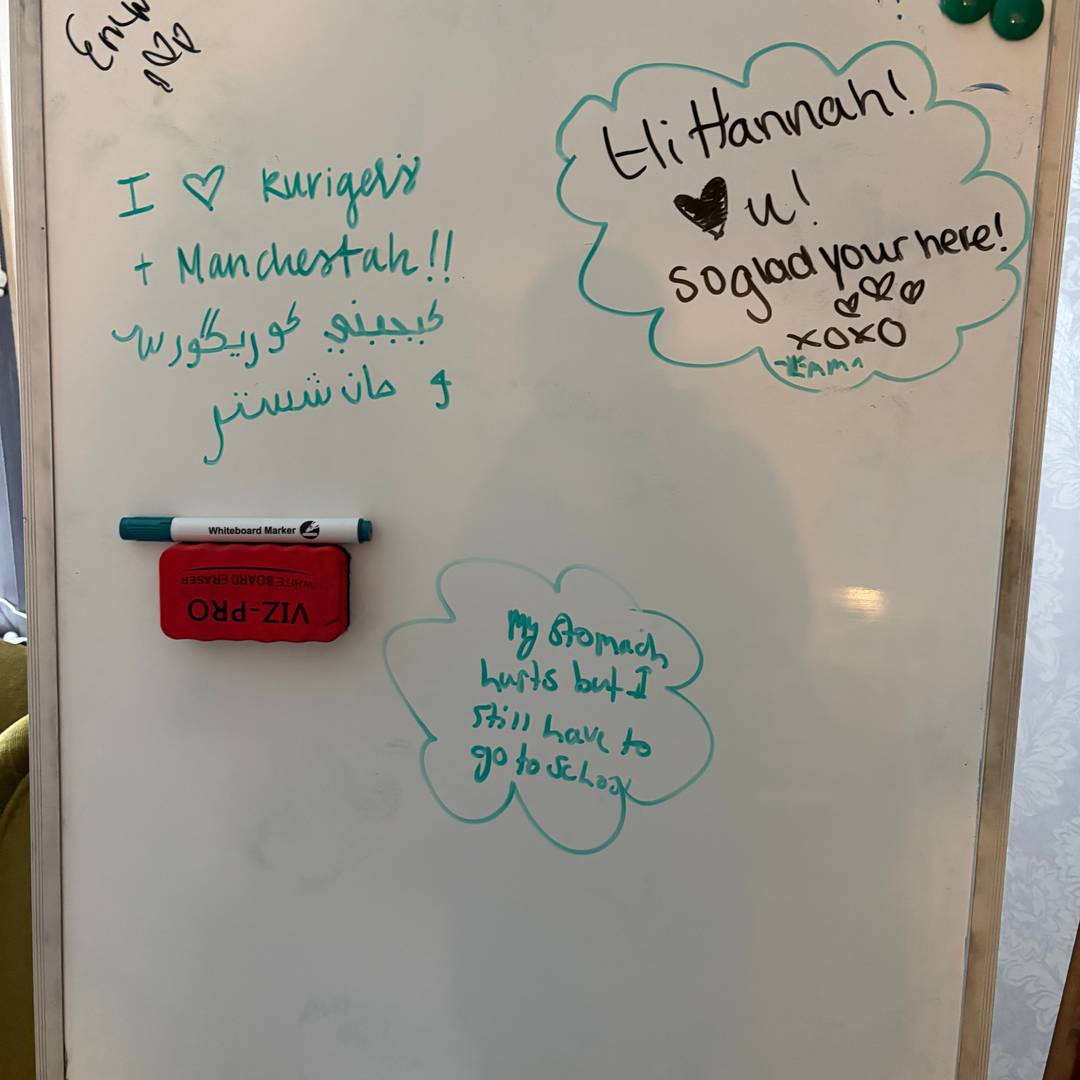 I ♡ Kurigers
+ Manchestah!!
كيجبني كوريگورس
و مان شستر
Hi Hannah!
♥ u!
so glad your here!
♡♡♡
XOXO
Whiteboard Marker
WHITE BOARD ERASER
VIZ-PRO
My stomach
hurts but I
still have to
go to school